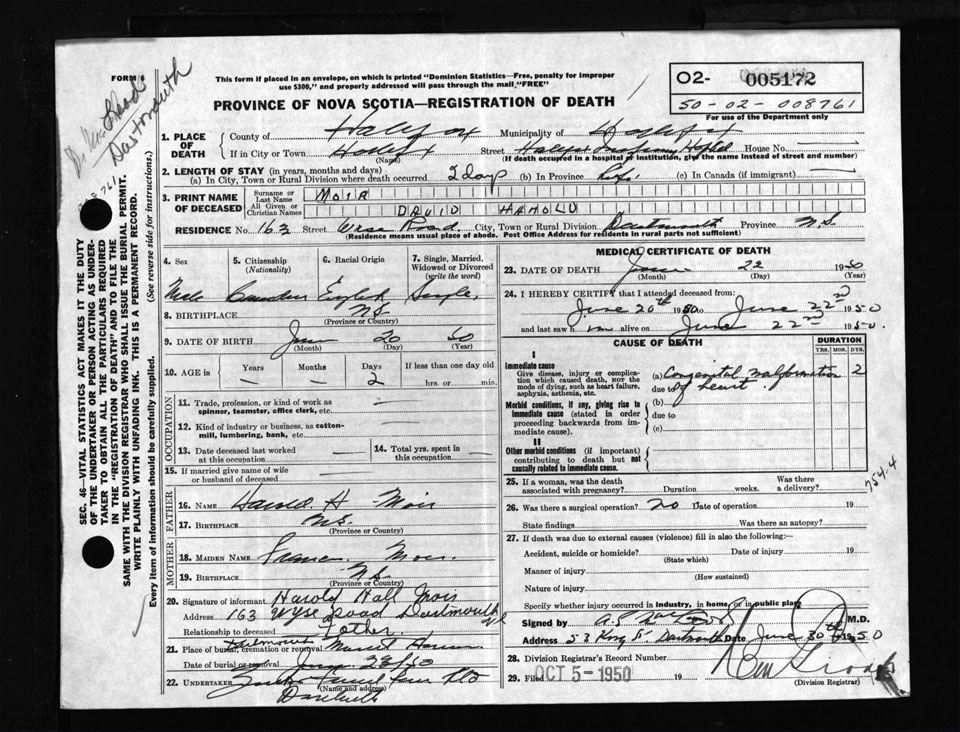 FORM 6
This form if placed in an envelope, on which is printed "Dominion Statistics—Free, penalty for improper
use $300," and properly addressed will pass through the mail "FREE"
PROVINCE OF NOVA SCOTIA—REGISTRATION OF DEATH
O2- 005172
50-02-008761
For use of the Department only
Dartmouth
SEC. 46—VITAL STATISTICS ACT MAKES IT THE DUTY
OF THE UNDERTAKER OR PERSON ACTING AS UNDER-
TAKER TO OBTAIN ALL THE PARTICULARS REQUIRED
IN THE "REGISTRATION OF DEATH" AND TO FILE THE
SAME WITH THE DIVISION REGISTRAR WHO SHALL ISSUE THE BURIAL PERMIT.
WRITE PLAINLY WITH UNFADING INK. THIS IS A PERMANENT RECORD.
Every item of information should be carefully supplied. (See reverse side for instructions.)
1. PLACE OF DEATH County of Halifax Municipality of Halifax
If in City or Town Halifax Street Halifax Infirmary Hospital House No.
(Name) (If death occurred in a hospital or institution, give the name instead of street and number)
2. LENGTH OF STAY (in years, months and days)
(a) In City, Town or Rural Division where death occurred 2 days (b) In Province (c) In Canada (if immigrant)
3. PRINT NAME OF DECEASED Surname or Last Name MOIR
All Given or Christian Names DAVID HAROLD
RESIDENCE No. 163 Street Wyse Road City, Town or Rural Division Dartmouth Province N.S.
(Residence means usual place of abode. Post Office Address for residents in rural parts not sufficient)
4. Sex 5. Citizenship (Nationality) 6. Racial Origin 7. Single, Married, Widowed or Divorced (write the word)
Male Canadian English Single
8. BIRTHPLACE N.S.
(Province or Country)
9. DATE OF BIRTH June 20 50
(Month) (Day) (Year)
10. AGE in Years Months Days If less than one day old
— — 2 hrs. or min.
OCCUPATION
11. Trade, profession, or kind of work as spinner, teamster, office clerk, etc. —
12. Kind of industry or business, as cotton-mill, lumbering, bank, etc. —
13. Date deceased last worked at this occupation
14. Total yrs. spent in this occupation
15. If married give name of wife or husband of deceased
FATHER
16. NAME Harold H Moir
17. BIRTHPLACE N.S.
(Province or Country)
MOTHER
18. MAIDEN NAME Frances Moir
19. BIRTHPLACE N.S.
(Province or Country)
20. Signature of informant Harold Hall Moir
Address 163 Wyse Road Dartmouth
Relationship to deceased Father
21. Place of burial, cremation or removal Dartmouth Mount Hermon
Date of burial or removal June 23/50
22. UNDERTAKER
(Name and address)
MEDICAL CERTIFICATE OF DEATH
23. DATE OF DEATH June 22 1950
(Month) (Day) (Year)
24. I HEREBY CERTIFY that I attended deceased from:
June 20th 1950 to June 22nd 1950
and last saw him alive on June 22nd 1950.
CAUSE OF DEATH DURATION
YRS. MOS. DYS.
I
Immediate cause
Give disease, injury or complication which caused death, NOT the mode of dying, such as heart failure, asphyxia, asthenia, etc.
(a) Congenital malformation 2
due to of heart.
Morbid conditions, if any, giving rise to immediate cause (stated in order proceeding backwards from immediate cause).
(b)
due to
(c)
II
Other morbid conditions (if important) contributing to death but not causally related to immediate cause.
754-4
25. If a woman, was the death associated with pregnancy? Duration weeks. Was there a delivery?
26. Was there a surgical operation? no Date of operation 19
State findings Was there an autopsy?
27. If death was due to external causes (violence) fill in also the following:—
Accident, suicide or homicide? Date of injury 19
(State which)
Manner of injury
(How sustained)
Nature of injury
Specify whether injury occurred in industry, in home, or in public place
Signed by M.D.
Address 53 King St. Dartmouth Date June 30th 1950
28. Division Registrar's Record Number
29. Filed OCT 5 - 1950 19
(Division Registrar)